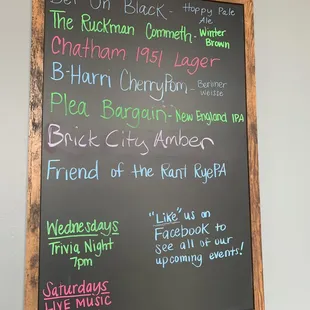 Bet On Black - Hoppy Pale
Ale
The Ruckman Commeth - Winter
Brown
Chatham 1951 Lager
B-Harri CherryPom - Berliner
Weisse
Plea Bargain - New England IPA
Brick City Amber
Friend of the Rant RyePA
Wednesdays
Trivia Night
7pm
Saturdays
LIVE MUSIC
"Like" us on
Facebook to
see all of our
upcoming events!